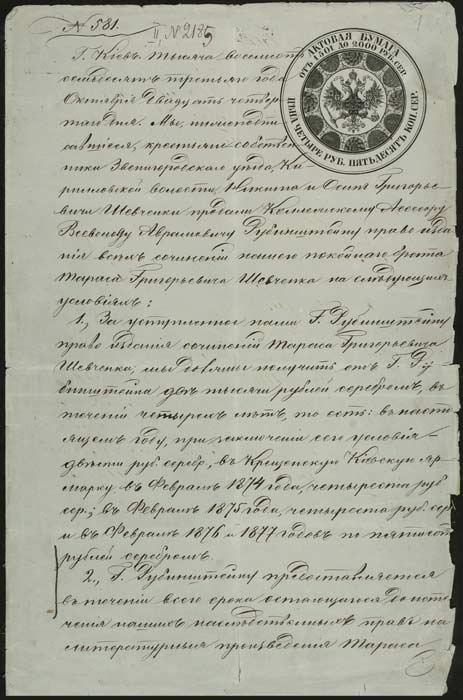 № 581.
II, № 2185
АКТОВАЯ БУМАГА
ОТЪ 1501 ДО 2000 РУБ. СЕР.
ЦѢНА ЧЕТЫРЕ РУБ. ПЯТЬДЕСЯТЪ КОП. СЕР.
Г. Кіевъ. Тысяча восемьсотъ
семьдесятъ третьяго года
Октября двадцать четвер-
таго дня. Мы, нижеподпи-
савшіеся, крестьяне собствен-
ники Звенигородскаго уѣзда, Ки-
рилловской волости, Никита и Осипъ Григорье-
вичи Шевченки продали Коллежскому Ассесору
Всеволоду Абрамовичу Рубинштейну право изда-
нія всѣхъ сочиненій нашего покойнаго брата
Тараса Григорьевича Шевченка на слѣдующихъ
условіяхъ:
1., За уступленное нами Г. Рубинштейну
право изданія сочиненій Тараса Григорьевича
Шевченка, мы должны получить отъ Г. Ру-
бинштейна двѣ тысячи рублей серебромъ, въ
теченіи четырехъ лѣтъ, то есть: въ насто-
ящемъ году, при заключеніи сего условія –
двѣсти руб. серебр., въ Крещенскую Кіевскую яр-
марку въ Февралѣ 1874 года, четыреста руб.
сер.; въ Февралѣ 1875 года, четыреста руб. сер.
и въ Февралѣ 1876 и 1877 годовъ по пятисотъ
рублей серебромъ.
2., Г. Рубинштейну предоставляется
въ теченіи всего срока остающагося до исте-
ченія нашихъ наслѣдственныхъ правъ на
литературныя произведенія Тараса